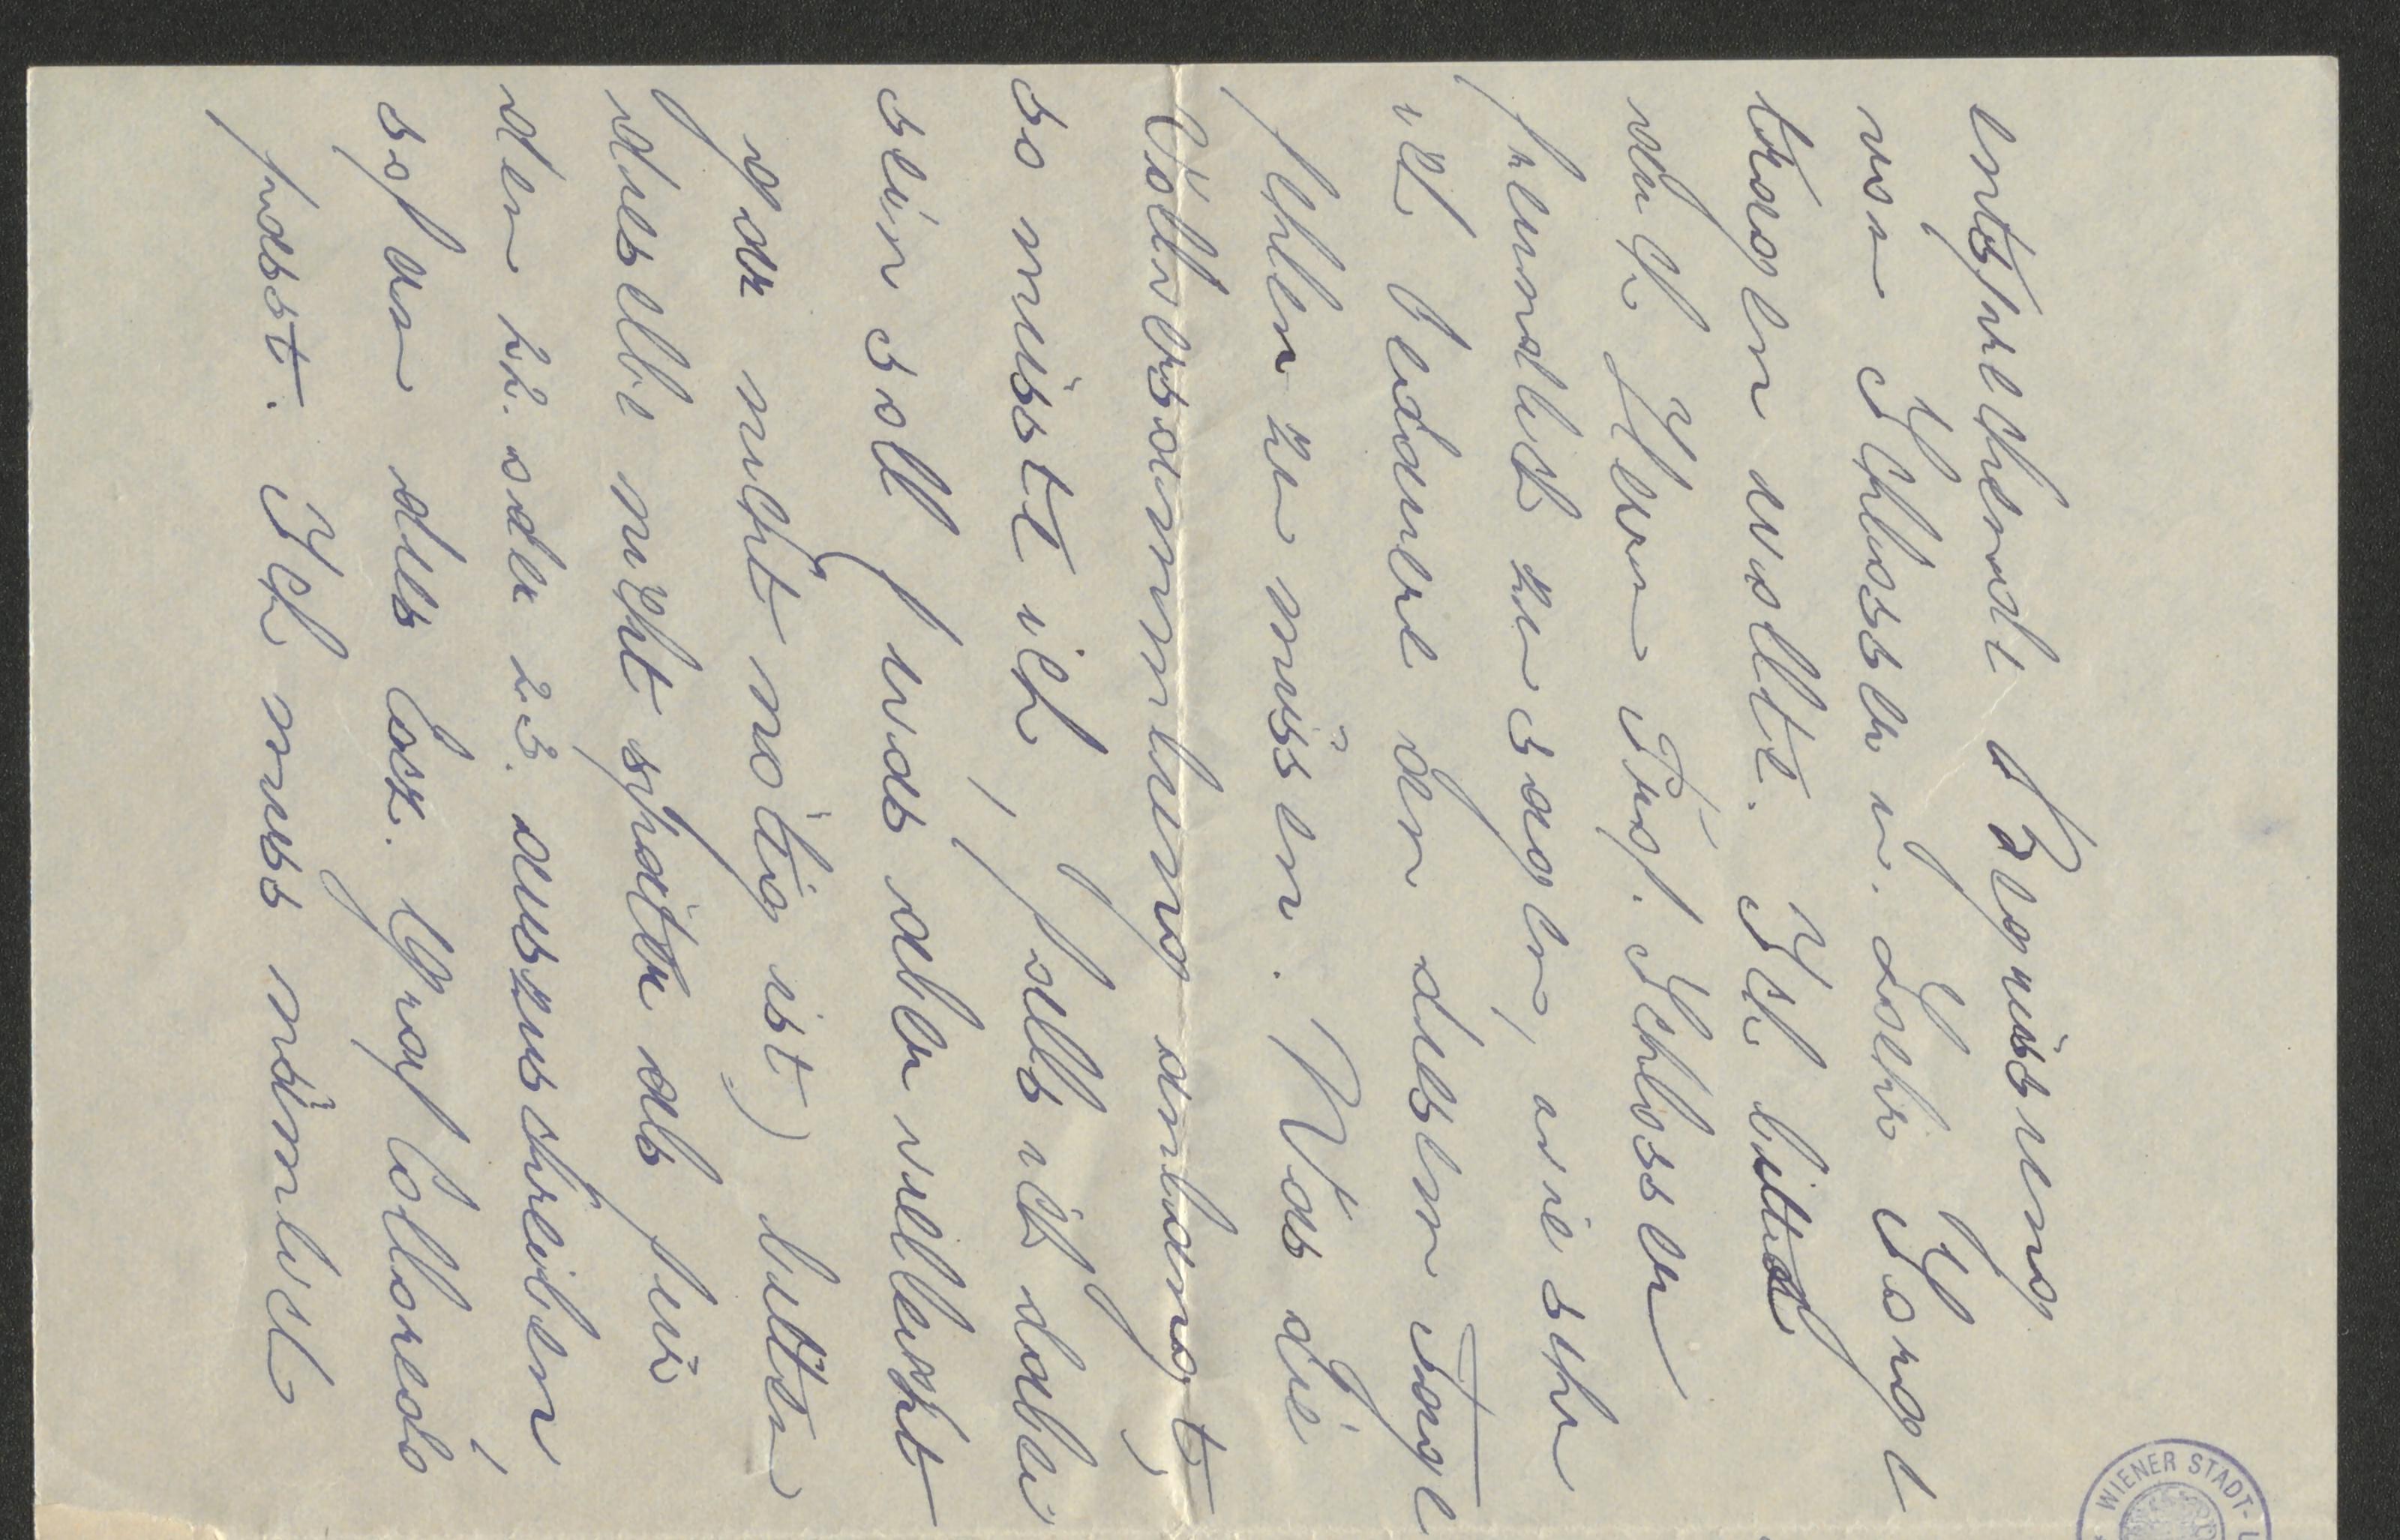 entsprechende Begrüssung
von Schlosser u. Loehr Sorge
tragen wollte. Ich bitte
auch Herrn Prof. Schlosser
freundlich zu sagen, wie sehr
ich bedaure an diesem Tage
fehlen zu müssen. Was die
Vollversammlung anlangt,
so müsste ich, falls ich dabei
sein soll (was aber vielleicht
gar nicht nötig ist) bitten
dieselbe nicht später als für
den 22. oder 23. auszuschreiben,
sofern dies Exz. Graf Colloredo
passt. Ich muss nämlich
WIENER STADT-